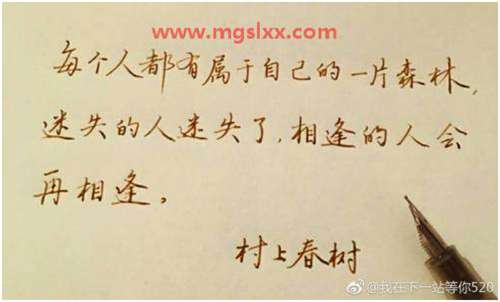 www.mgslxx.com
每个人都有属于自己的一片森林,
迷失的人迷失了,相逢的人会
再相逢。
村上春树
@我在下一站等你520